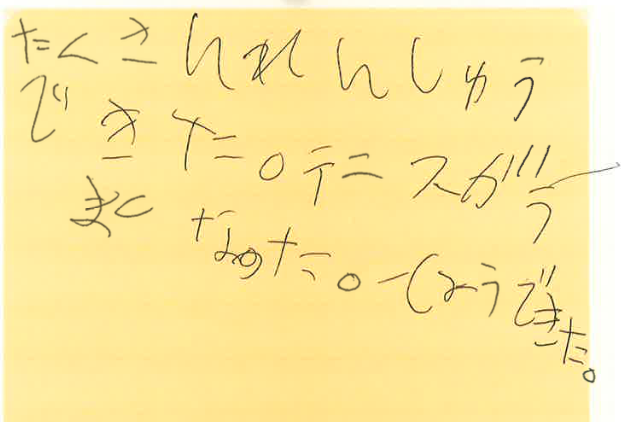 たくさんれんしゅう
できた。テニスがう
まくなった。しょうできた。